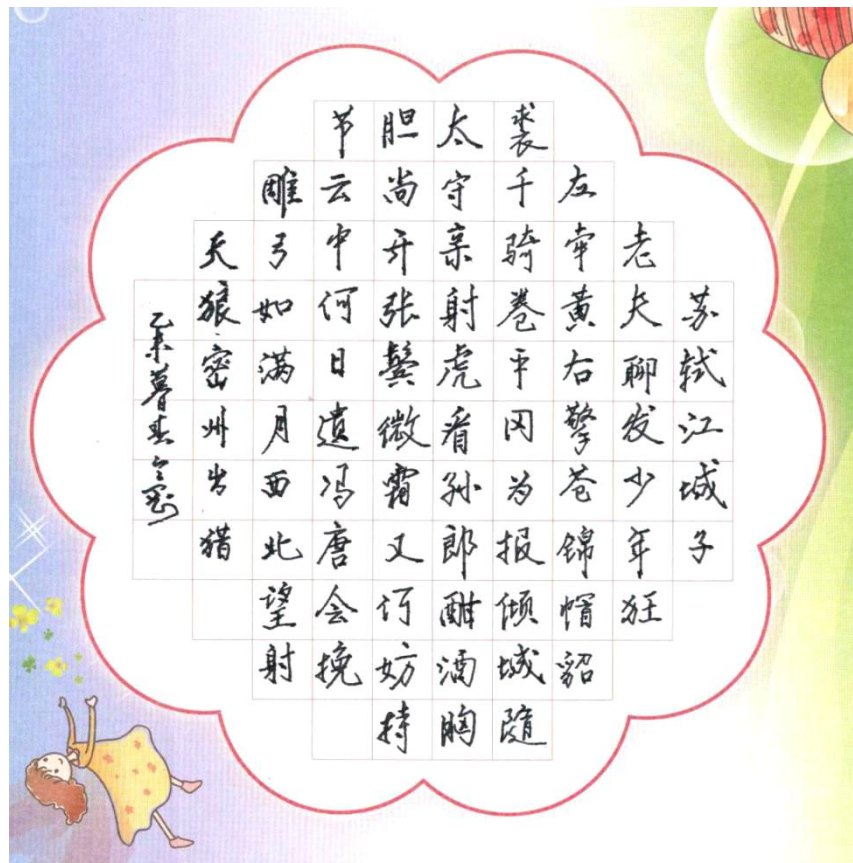 苏轼江城子
老夫聊发少年狂
左牵黄右擎苍锦帽貂
裘千骑卷平冈为报倾城随
太守亲射虎看孙郎酣酒胸
胆尚开张鬓微霜又何妨持
节云中何日遣冯唐会挽
雕弓如满月西北望射
天狼密州出猎
乙未暮春